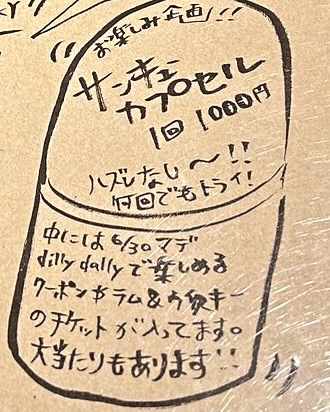 お楽しみ企画!!
サンキュー
カプセル
1回 1000円
ハズレなし〜!!
何回でもトライ!
中には6/30マデ
dilly dallyで楽しめる
クーポンやラム&ウ
のチケットが入ってます。
大当たりもあります!!